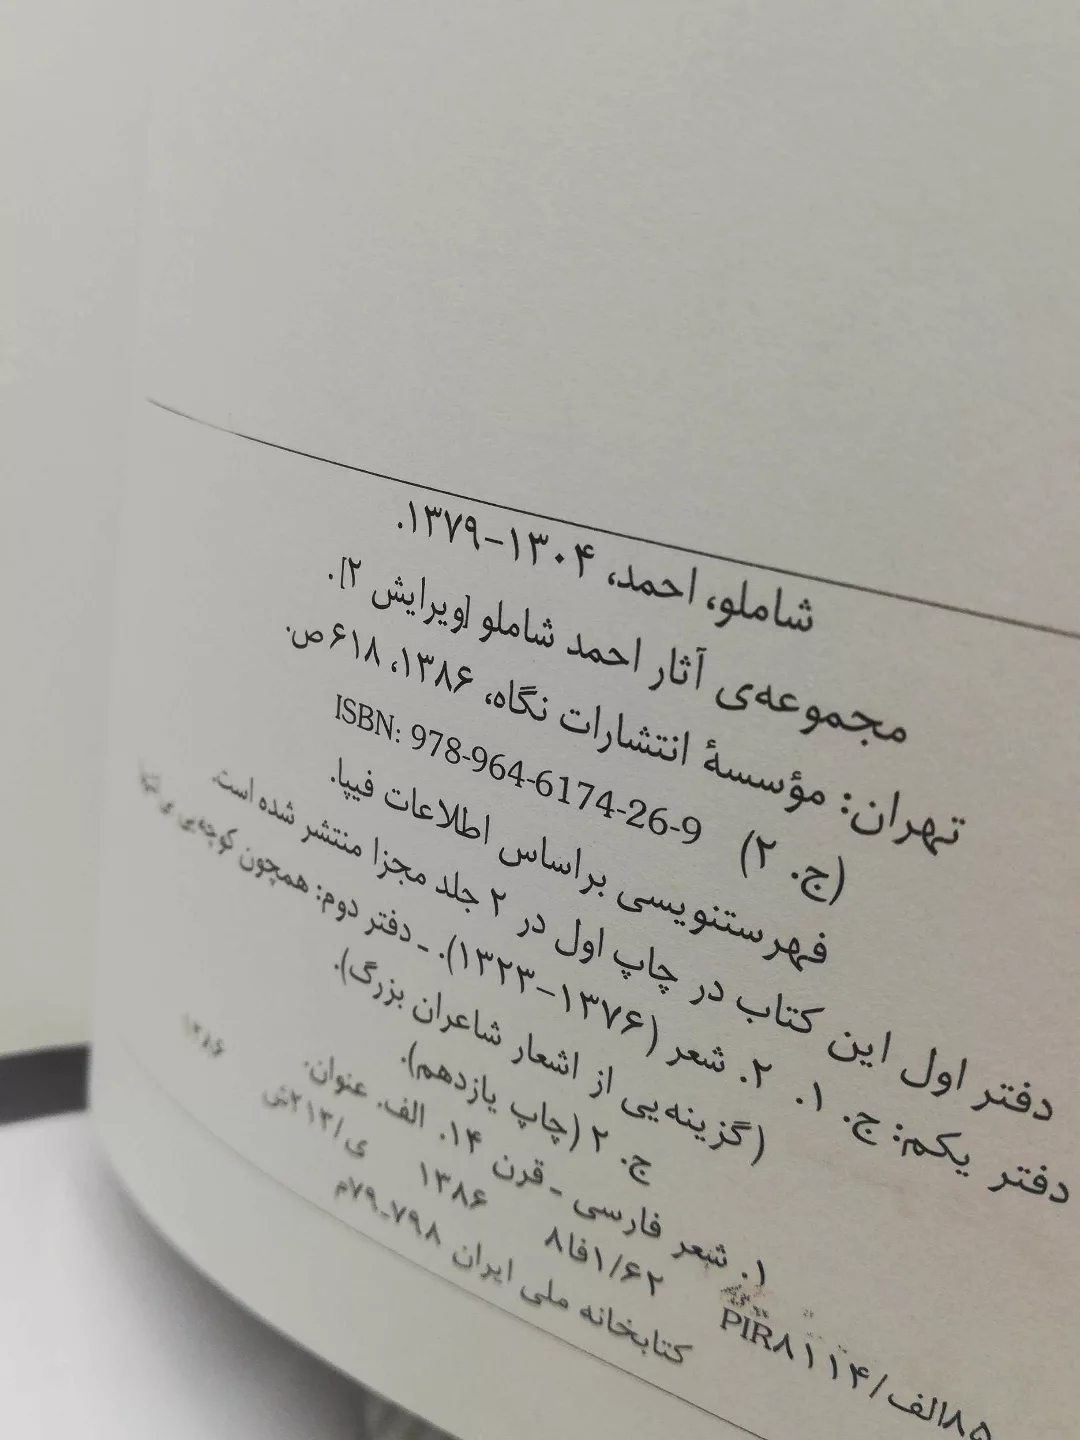 شاملو، احمد، ۱۳۰۴-۱۳۷۹.
مجموعه‌ی آثار احمد شاملو [ویرایش ۲].
تهران: مؤسسهٔ انتشارات نگاه، ۱۳۸۶، ۶۱۸ ص.
(ج. ۲) ISBN: 978-964-6174-26-9
فهرستنویسی براساس اطلاعات فیپا.
دفتر اول این کتاب در چاپ اول در ۲ جلد مجزا منتشر شده است.
دفتر یکم: ج. ۱. ۲. شعر (۱۳۷۶-۱۳۲۳). ـ دفتر دوم: همچون کوچه‌یی بی
(گزینه‌یی از اشعار شاعران بزرگ).
ج. ۲ (چاپ یازدهم).
۱. شعر فارسی ـ قرن ۱۴. الف. عنوان.
۸۵الف/PIR۸۱۱۴ ۱/۶۲فا۸ ۱۳۸۶ ی/۲۱۳ش ۱۳۸۶
کتابخانه ملی ایران ۷۹۸ـ۷۹م